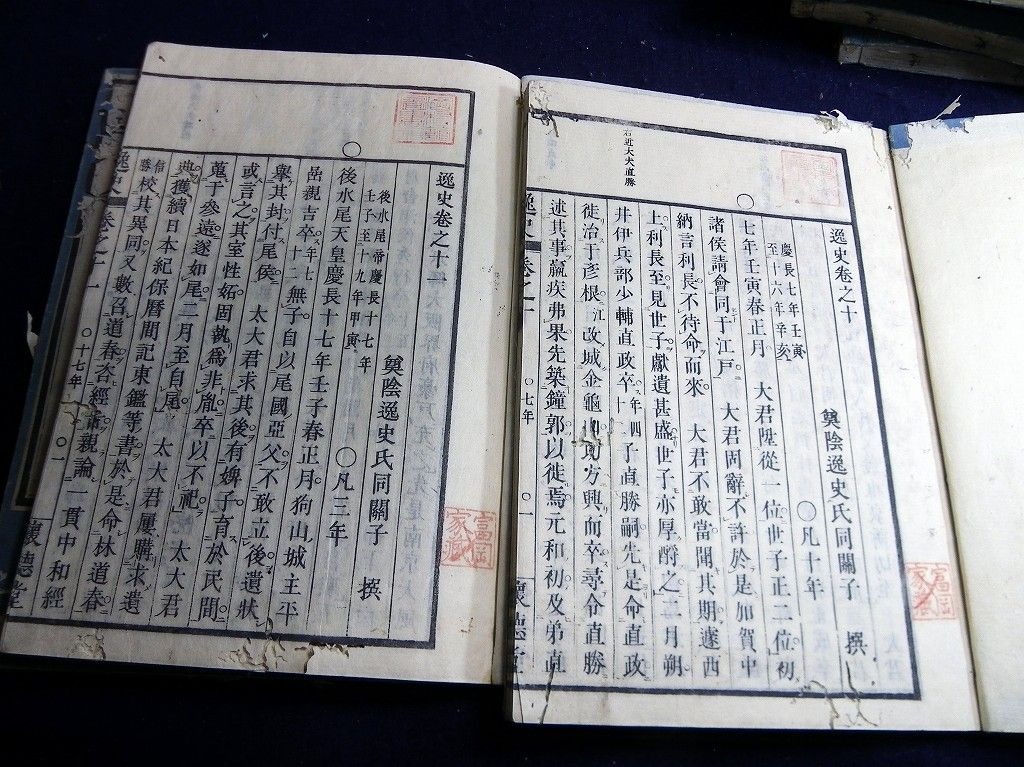 逸史卷之十
奠陰逸史氏同關子 撰
慶長七年壬寅
至十六年辛亥
○凡十年
○
七年壬寅春正月 大君陞從一位世子正二位初
諸侯請會同于江戸 大君固辭不許於是加賀中
納言利長不待命而來 大君不敢當聞其期遽西
上利長至見世子獻遺甚盛世子亦厚酬之二月朔
井伊兵部少輔直政卒年四十二子直勝嗣先是命直政
徙治于彦根江改城金龜山方興而卒尋令直勝
述其事羸疾弗果先築鐘郭以徙焉元和初及弟直
右近大夫直勝
逸史 卷之十
○七年
○一
懷德堂
富岡
家藏
逸史卷之十一
奠陰逸史氏同關子 撰
後水尾帝慶長十七年
壬子至十九年甲寅
○凡三年
○
後水尾天皇慶長十七年壬子春正月狗山城主平
岳親吉卒年七十二無子自以尾國亞父不敢立後遺狀
擧其封付尾侯 太大君求其後有婢子育於民間
或言之其室性妬固執爲非胤卒以不祀 太大君
蒐于參遠遂如尾二月至自尾 太大君屢購求遺
典獲續日本紀保暦間記東鑑等書於是命林道春
信勝校其異同又數召道春咨經話親論一貫中和經
逸史 卷之十一
○十七年
○一
懷德堂
富岡
家藏